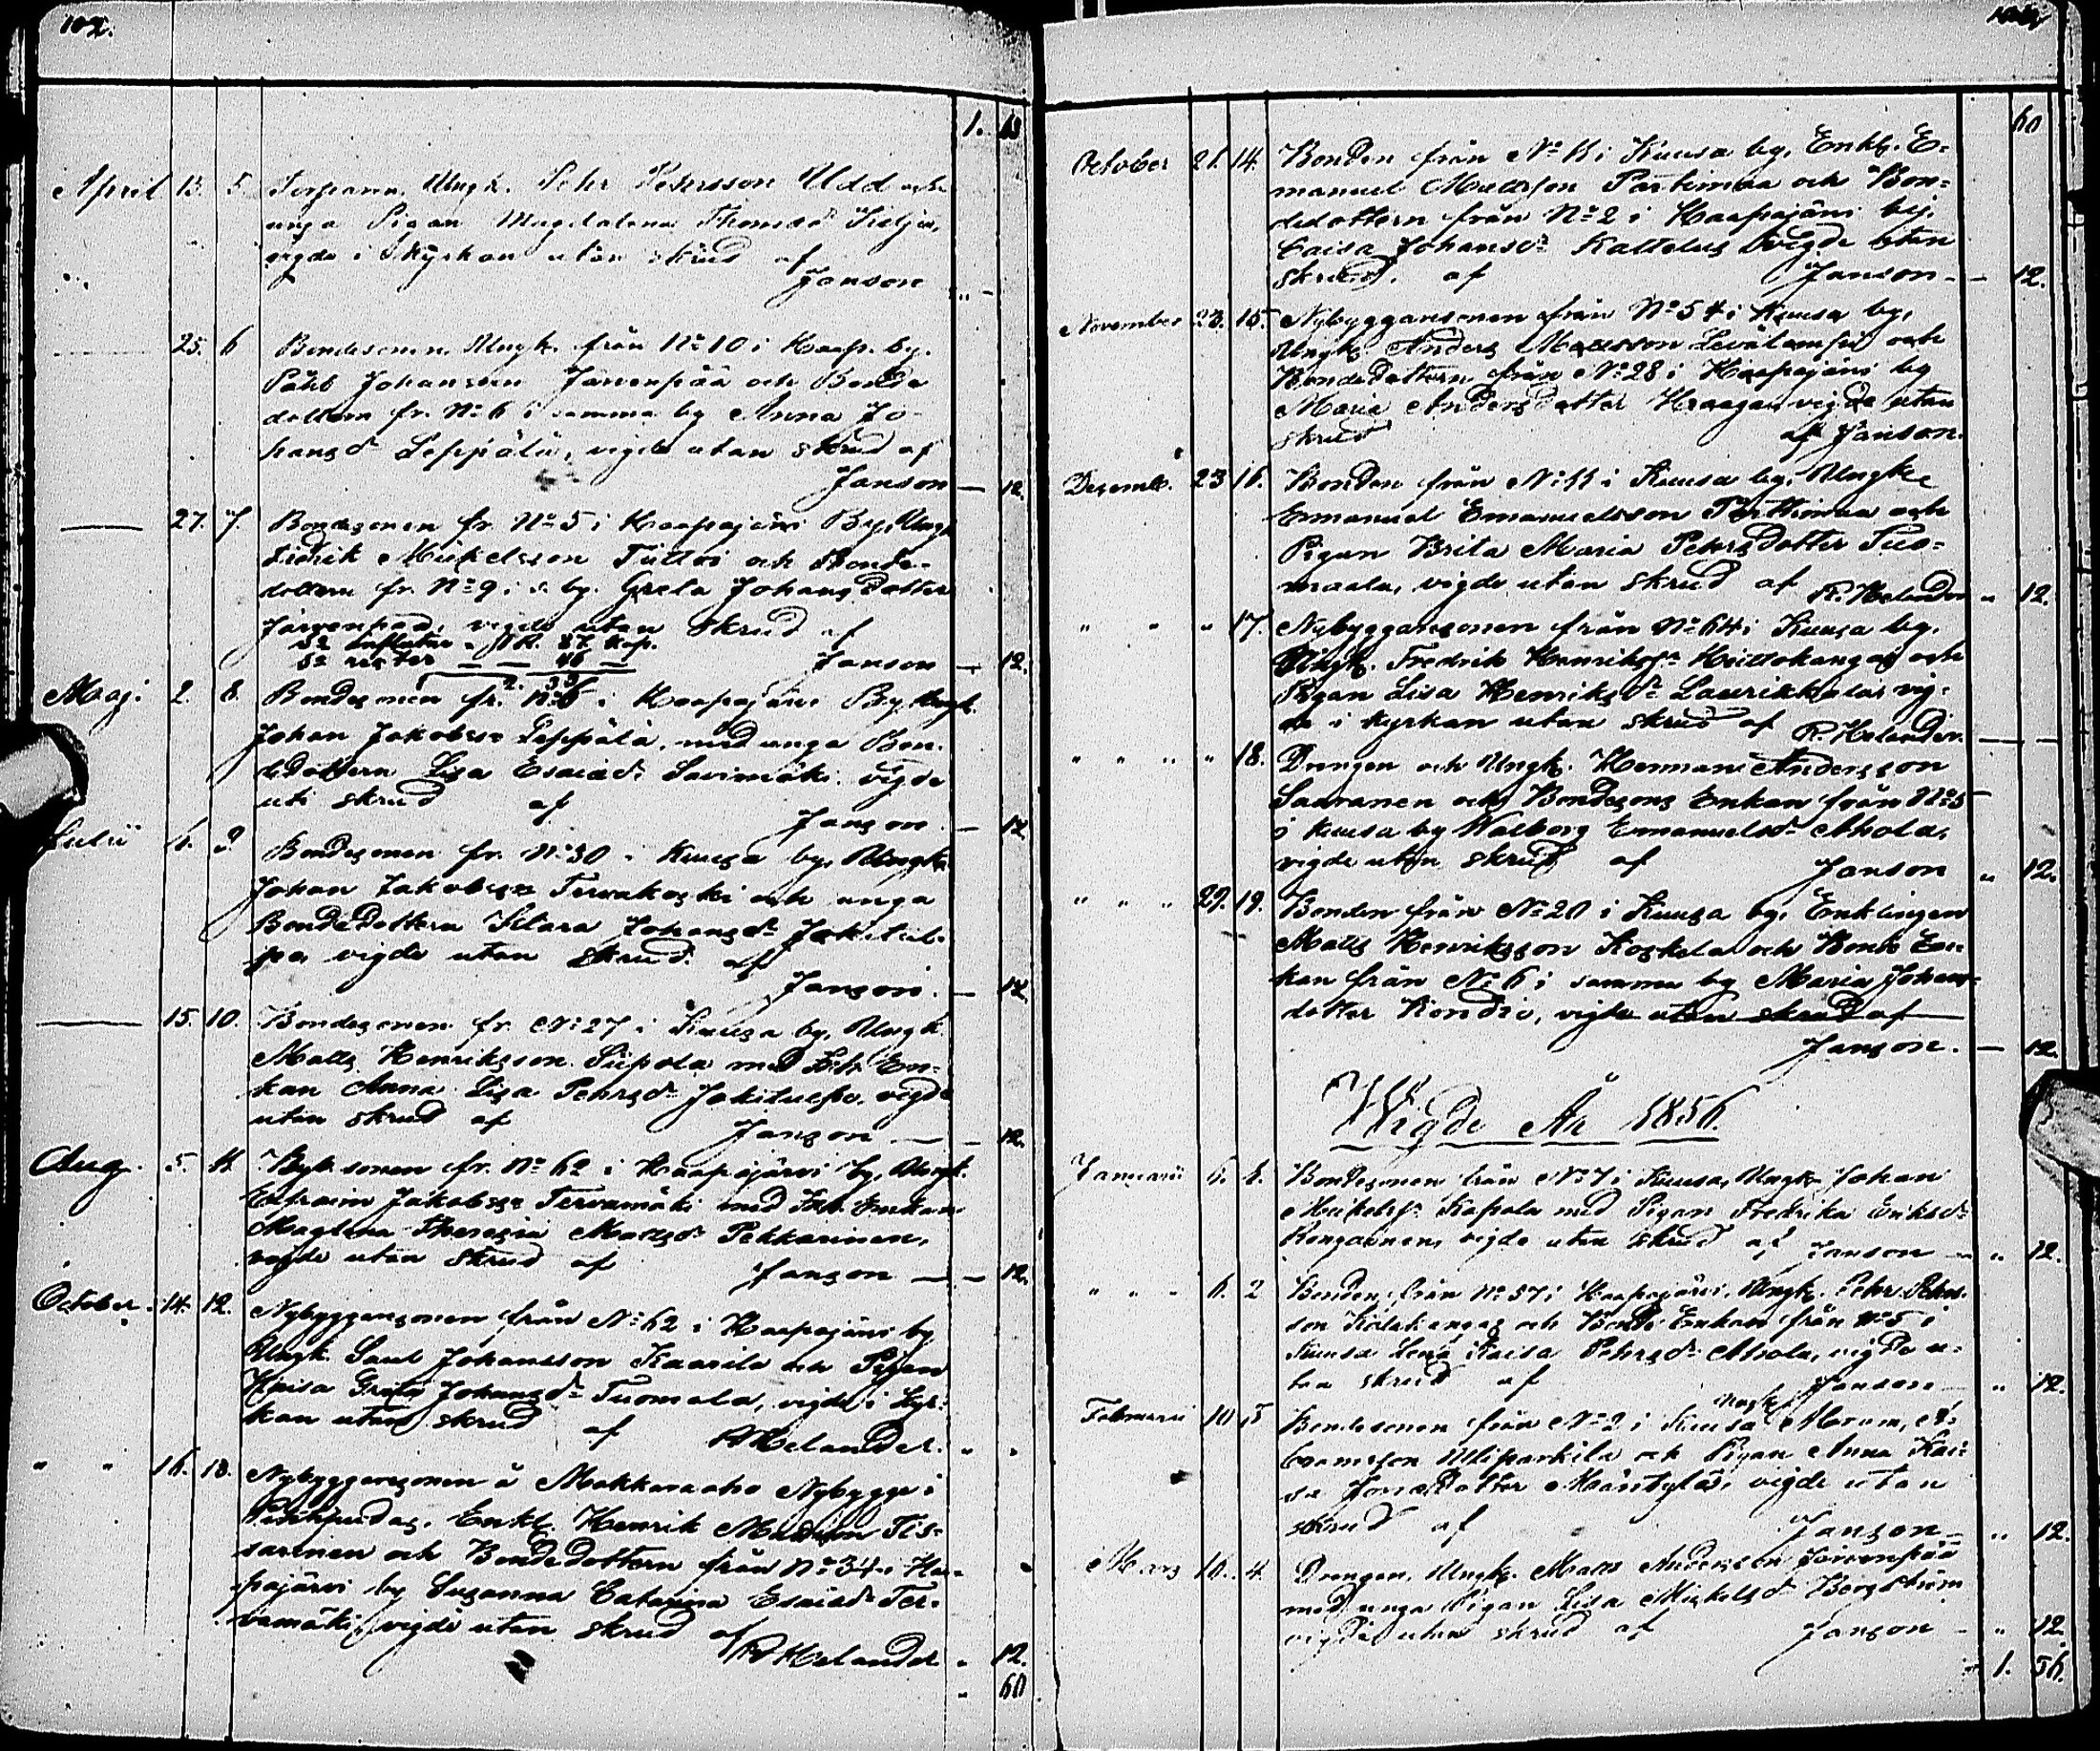 102.
1.
April 13. 5. Torparen, Ungk. Pehr Pehrsson Udd och
unga Pigan Magdalena Thomasd
vigde i Kyrkan utan skrud af
Janson
25. 6 Bondesonen Ungk. från No 10 i Haap. by.
Påhl Johansson Järvenpää och Bonde
dottern fr. No 6 i samma by Anna Jo-
hansdr Leppälä, vigde utan skrud af
Janson — 12.
27. 7. Bondesonen fr. No 5 i Haapajärvi By, Ungk
Fidrik Mickelsson Tuttoi och Bonde-
dottern fr. No 9 i s. by. Greta Johans Dotter
Järvenpää, vigde utan skrud af
Janson — 12.
Maji 2. 8. Bondesonen fr. No 6 i Haapajärvi By, Ungk.
Johan Jakobsson Leppälä, med unga Bon-
dedottern Lisa Esaiaedr Savimäki vigde
utan skrud af
Janson — 12
Julii 6. 9 Bondesonen fr. No 30 i Kuusa by, Ungk.
Johan Jakobsson Tervakoski och unga
Bondedottern Klara Johansdr Jokitul-
po, vigde utan skrud af
Janson. — 12.
15. 10. Bondesonen fr. No 27 i Kuusa by, Ungk
Matts Henriksson Siipola med Enk-
kan Anna Lisa Pehrsdr Jokitulpo, vigde
utan skrud af
Janson — 12.
Aug. 5. 11. Byk. sonen fr. No 62 i Haapajärvi by, Ungk.
Efraim Jakobsson Tervamäki med Enkan
Maglena Theresia Mattsdr Pekkarinen,
vigde utan skrud af
Janson — 12.
October. 14. 12. Nybyggaresonen från No 62 i Haapajärvi by
Ungk. Saul Johansson Kaarila och Pigan
Kaisa Greta Johansdr Tuomala, vigde i Kyr-
kan utan skrud af
R Helander.
" " 16. 13. Nybyggaresonen å Makkaraaho Nybygge i
Pihtipudas, Enkl. Henrik Mattsson Tis-
sarinen och Bondedottern från No 34 i Haa-
pajärvi by Susanna Catarina Esaiædr Ter-
vamäki, vigde utan skrud af
R Helander " 12.
" 60
60
October 21. 14. Bonden från No 11 i Kuusa by, Enkl. E-
manuel Mattsson Parttimaa och Bon-
dedottern från No 2 i Haapajärvi by.
Caisa Johansdr Kattelus vigde utan
skrud. af Janson — 12.
November 23. 15. Nybyggaresonen från No 54 i Kuusa by,
Ungk. Anders Mattsson Levälampi och
Bondedottern från No 28 i Haapajärvi by
Maria Andersdotter Haagan vigde utan
skrud af Janson.
Decemb. 23 16. Bonden från No 11 i Kuusa by, Ungk.
Emanuel Emanuelsson Parttimaa och
Pigan Brita Maria Pehrsdotter Tuo-
maala, vigde utan skrud af R. Helander " 12.
" " " 17. Nybyggaresonen från No 64 i Kuusa by.
Ungk. Fredrik Henrikss. Huttokangas och
Pigan Lisa Henriksdr Laurikkala, vig-
de i kyrkan utan skrud af R. Helander.
" " " " 18. Drengen och Ungk. Herman Andersson
Saaranen och Bondesons Enkan från No 5
i Kuusa by Walborg Emanuelsdr Ahola,
vigde utan skrud af Janson " 12.
" " " 29. 19. Bonden från No 20 i Kuusa by, Enklingen
Matts Henriksson Koskela och Bonde En-
kan från No 6 i samma by Maria Johans-
dotter Kondio, vigde utan skrud af
Janson. — 12.
Wigde År 1856.
Januarii 6. 1. Bondesonen från No 7 i Kuusa, Ungk. Johan
Mickelss. Kapola med Pigan Fredrika Eriksdr
Rongainen, vigde utan skrud af Janson — " 12.
" " " 6. 2 Bonden från No 57 i Haapajärvi, Ungk. Pehr Pehrs-
son Kalakangas och Bonde Enkan från No 5 i
Kuusa Lena Kaisa Pehrsdr Ahola, vigde u-
tan skrud af Janson " 12.
Februarii 10 3 Bondesonen från No 2 i Kuusa Ungk. Abram A-
bramsson Uliparkila och Pigan Anna Kai-
sa Jonæ Dotter Mäntylä, vigde utan
skrud af Janson — " 12.
Mars 16. 4. Drengen, Ungk. Matts Andersson Järvenpää
med unga Pigan Lisa Mickelsdr Bergström
vigde utan skrud af Janson — " 12.
1. 56.